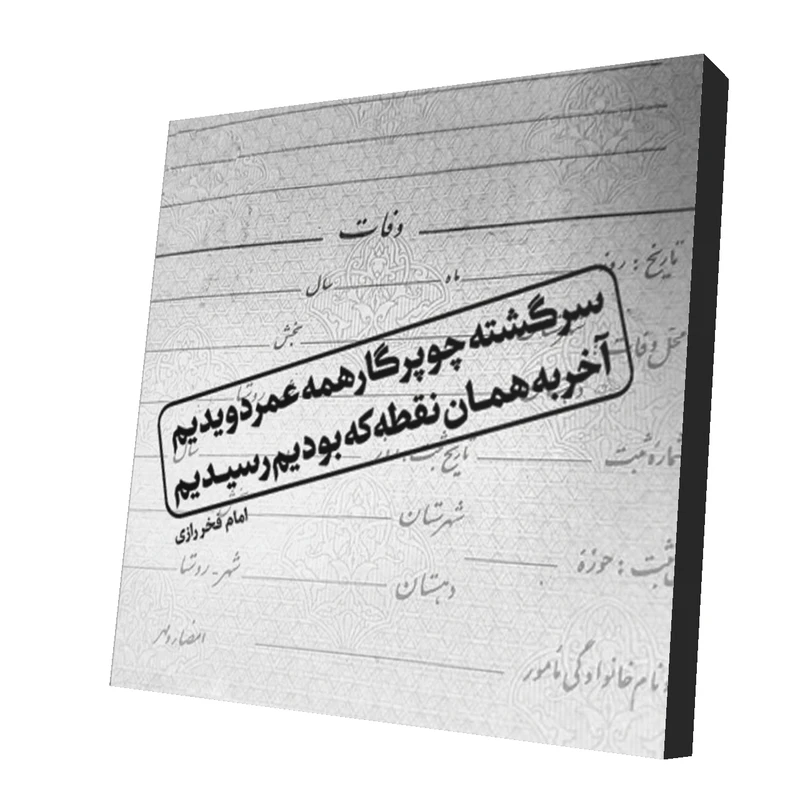 وفات
تاریخ : روز
ماه
سال
بخش
محل وفات
سرگشته چو پرگار همه عمر دویدیم
آخر به همان نقطه که بودیم رسیدیم
امام فخر رازی
شماره ثبت
تاریخ ثبت : روز
سال
شهرستان
ثبت : حوزه
شهر - روستا
دهستان
نام خانوادگی مأمور
امضاء و مهر